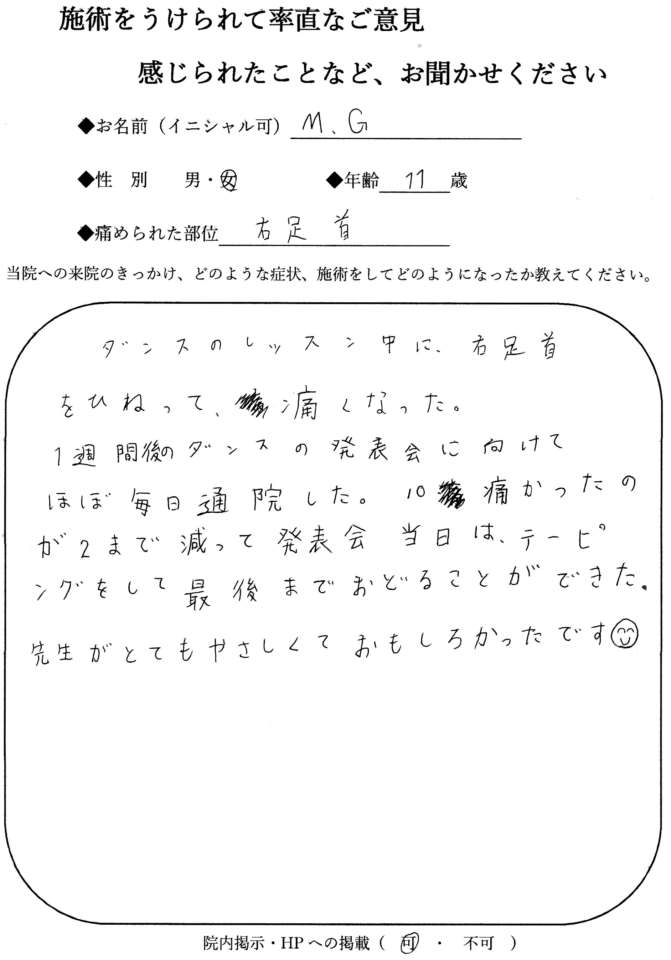 施術をうけられて率直なご意見
感じられたことなど、お聞かせください
◆お名前（イニシャル可） M、G
◆性 別 男・女 ◆年齢 11 歳
◆痛められた部位 右足首
当院への来院のきっかけ、どのような症状、施術をしてどのようになったか教えてください。
ダンスのレッスン中に、右足首
をひねって、痛くなった。
1週間後のダンスの発表会に向けて
ほぼ毎日通院した。10痛かったの
が2まで減って発表会当日は、テーピ
ングをして最後までおどることができた。
先生がとてもやさしくておもしろかったです
院内掲示・HPへの掲載（ 可 ・ 不可 ）